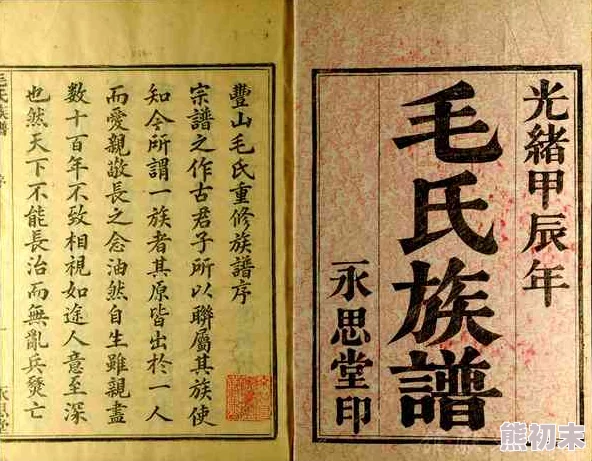 光緒甲辰年
毛氏族譜
永思堂印
豐山毛氏重修族譜序
宗譜之作古君子所以聯屬其族使
知今所謂一族者其原皆出於一人
而愛親敬長之念油然自生雖親盡
數十百年不致相視如途人意至深
也然天下不能長治而無亂兵燹亡
毛氏族譜
序
一
永思堂
熊初末